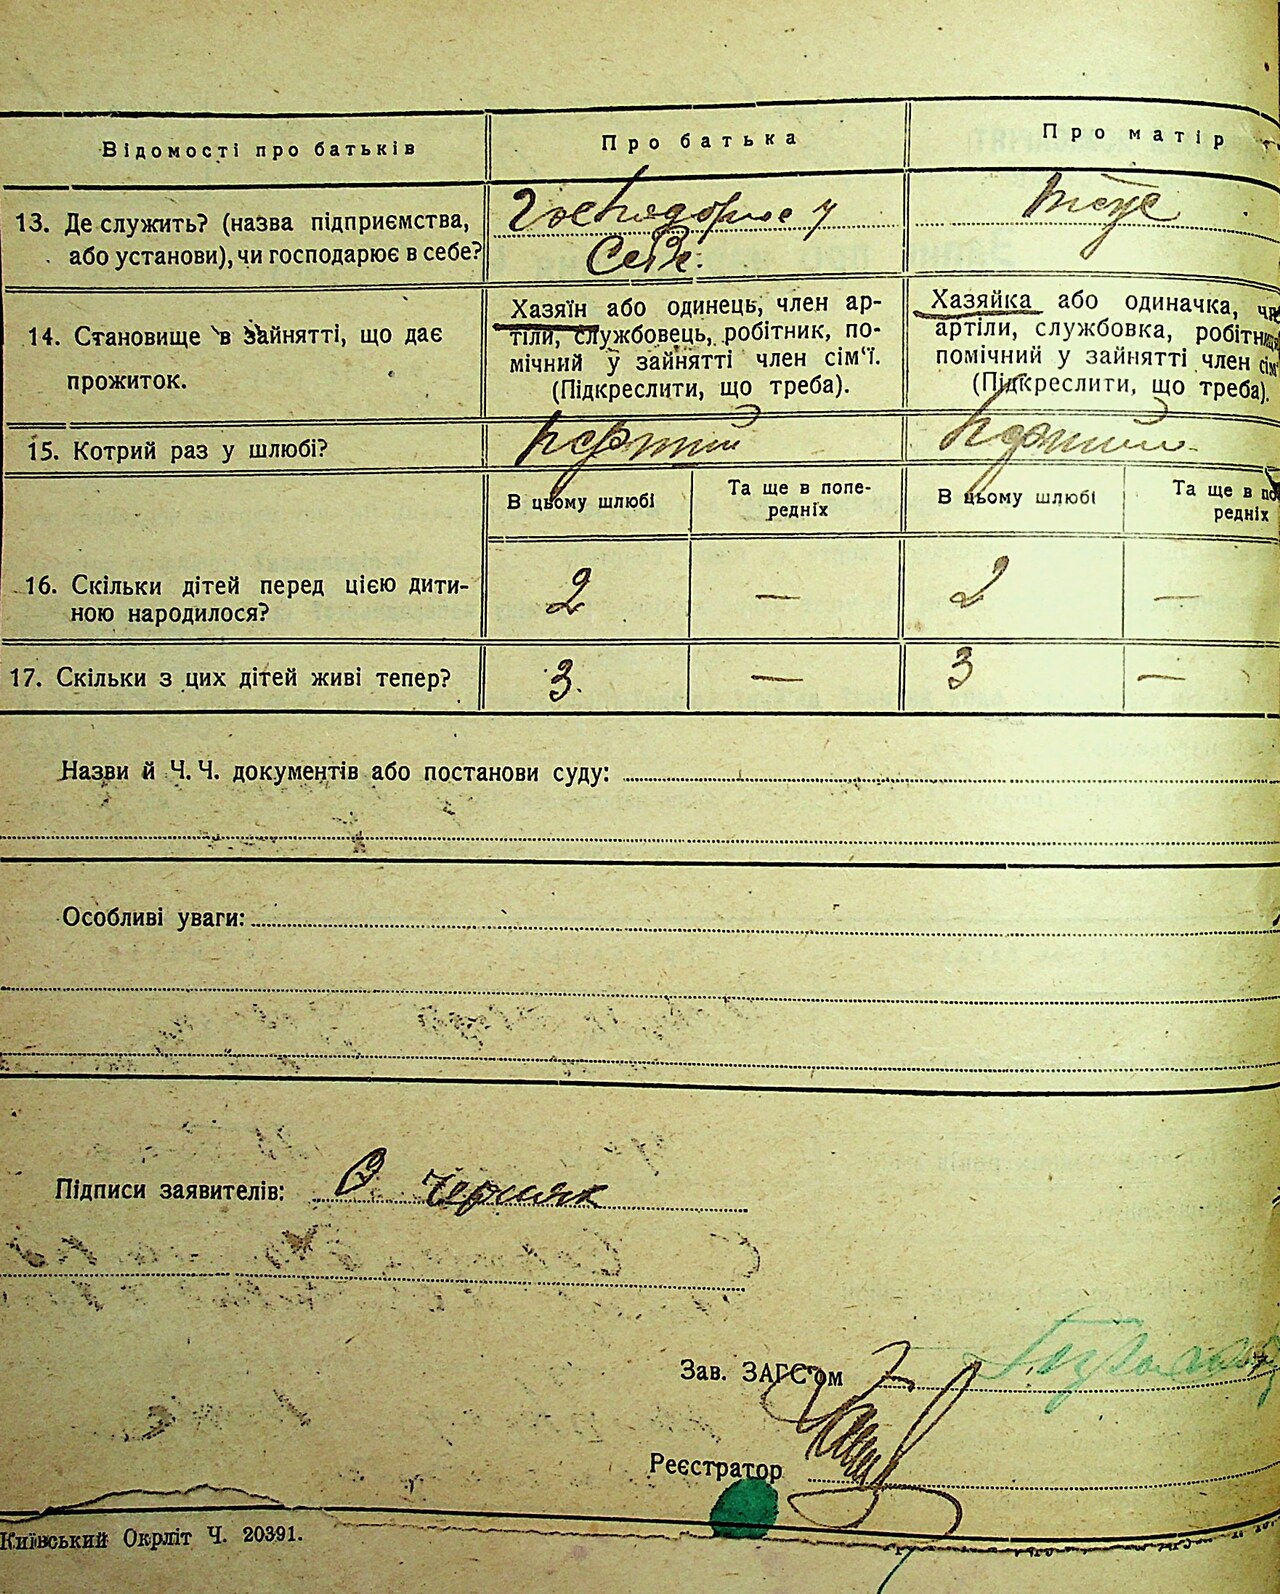 Відомості про батьків Про батька Про матір
13. Де служить? (назва підприємства, або установи), чи господарює в себе?
Господорює у
Себе.
14. Становище в зайнятті, що дає
прожиток.
Хазяїн або одинець, член ар-
тіли, службовець, робітник, по-
мічний у зайнятті член сім'ї.
(Підкреслити, що треба).
Хазяйка або одиначка, чле
артіли, службовка, робітниця
помічний у зайнятті член сім'
(Підкреслити, що треба).
15. Котрий раз у шлюбі? перший
В цьому шлюбі Та ще в попе-
редніх
В цьому шлюбі Та ще в по
редніх
16. Скільки дітей перед цією дити-
ною народилося?
2 — 2 —
17. Скільки з цих дітей живі тепер? 3. — 3 —
Назви й Ч. Ч. документів або постанови суду:
Особливі уваги:
Підписи заявителів: Черняк
Зав. ЗАГС'ом
Реєстратор
Київський Окрліт Ч. 20391.